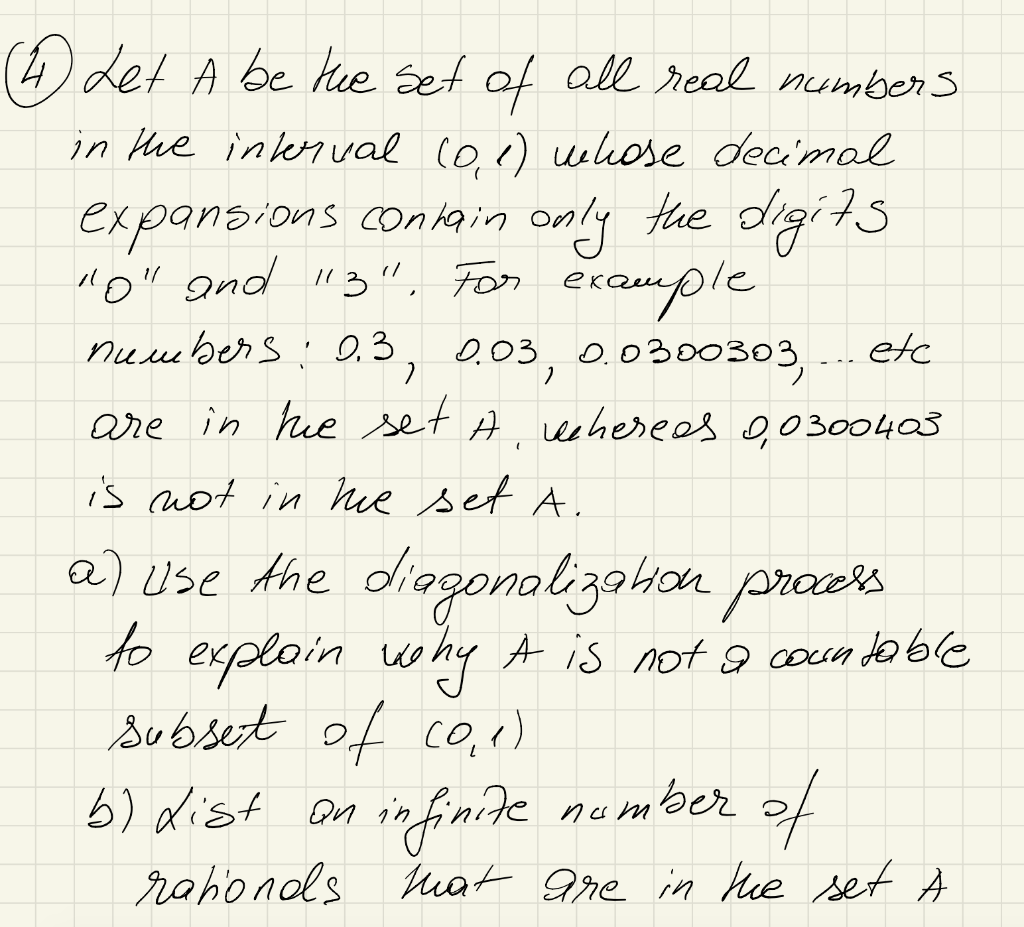 ④ Let A be the set of all real numbers
in the interval (0,1) whose decimal
expansions contain only the digits
"0" and "3". For example
numbers: 0.3, 0.03, 0.0300303, ... etc
are in the set A, whereas 0,0300403
is not in the set A.
a) Use the diagonalization process
to explain why A is not a countable
subset of (0,1)
b) List an infinite number of
rationals that are in the set A